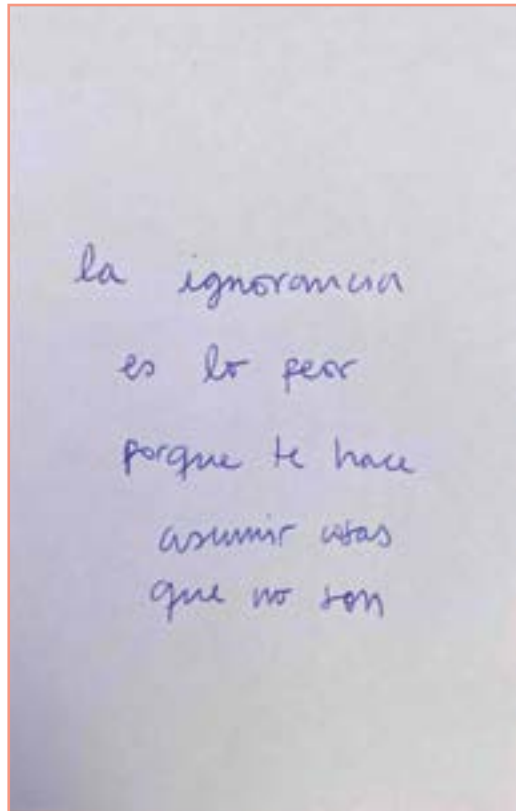 la ignorancia
es lo peor
porque te hace
asumir cosas
que no son